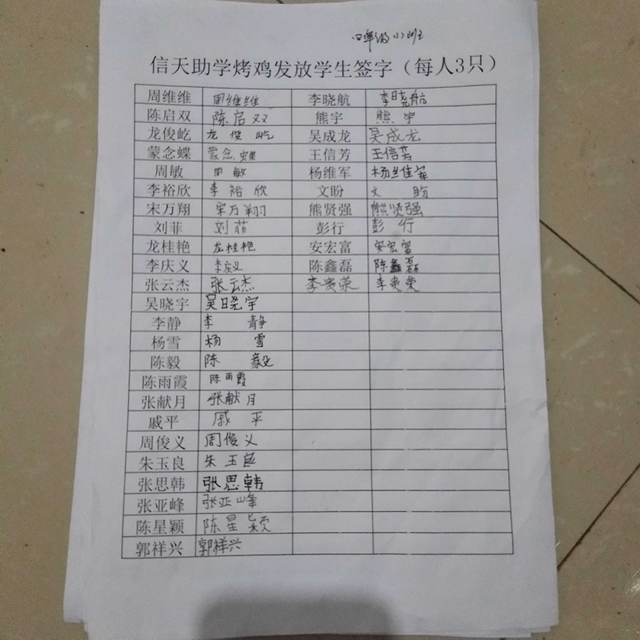 信天助学烤鸡发放学生签字（每人3只）
周维维 周维维 李晓航 李晓航
陈启双 陈启双 熊宇 熊宇
龙俊屹 龙俊屹 吴成龙 吴成龙
蒙念蝶 蒙念蝶 王信芳 王信芳
周敏 周敏 杨维军 杨维军
李裕欣 李裕欣 文盼 文盼
宋万翔 宋万翔 熊贤强 熊贤强
刘菲 刘菲 彭行 彭行
龙桂艳 龙桂艳 安宏富 安宏富
李庆义 李庆义 陈鑫磊 陈鑫磊
张云杰 张云杰
吴晓宇 吴晓宇
李静 李静
杨雪 杨雪
陈毅 陈毅
陈雨霞 陈雨霞
张献月 张献月
戚平 戚平
周俊义 周俊义
朱玉良 朱玉良
张思韩 张思韩
张亚峰 张亚峰
陈星颖 陈星颖
郭祥兴 郭祥兴